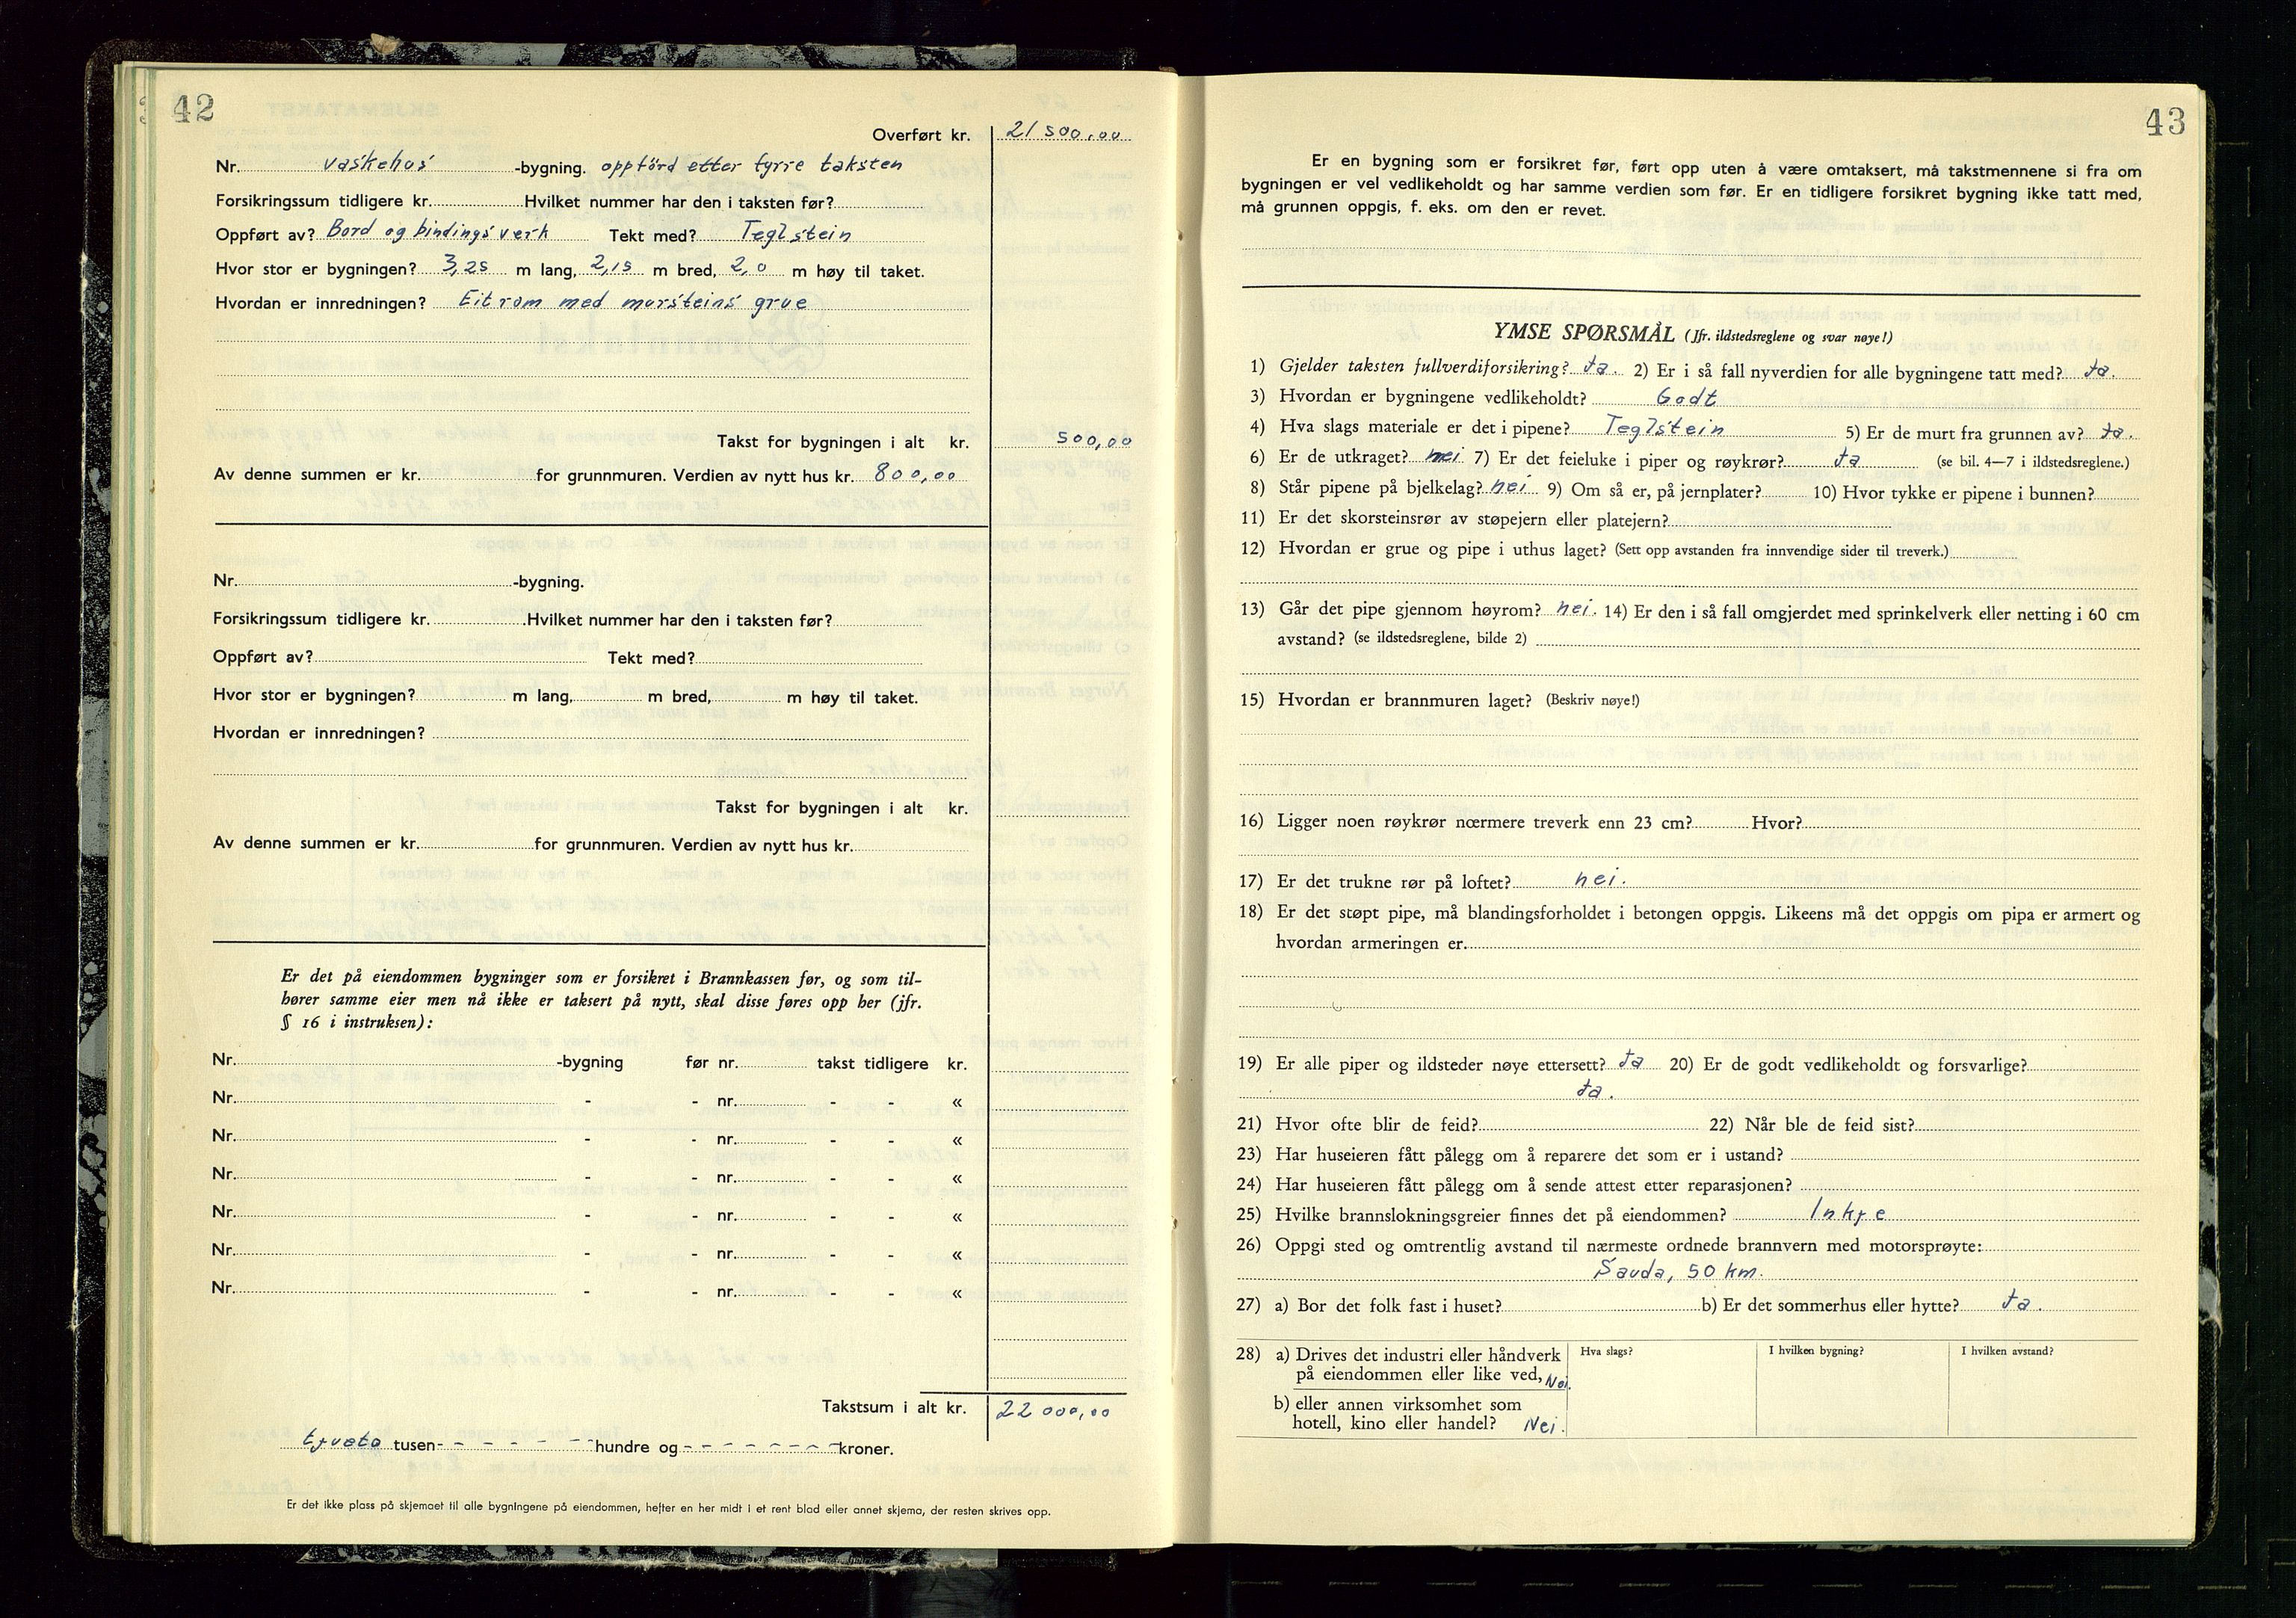 42
Overført kr. 21 500,00
Nr. vaskehus -bygning. oppförd etter fyrre taksten
Forsikringssum tidligere kr. Hvilket nummer har den i taksten før?
Oppført av? Bord og bindingsverk Tekt med? Teglstein
Hvor stor er bygningen? 3,25 m lang, 2,15 m bred, 2,0 m høy til taket.
Hvordan er innredningen? Eit rom med mursteins grue
Takst for bygningen i alt kr. 500,00
Av denne summen er kr. for grunnmuren. Verdien av nytt hus kr. 800,00
Nr. -bygning.
Forsikringssum tidligere kr. Hvilket nummer har den i taksten før?
Oppført av? Tekt med?
Hvor stor er bygningen? m lang, m bred, m høy til taket.
Hvordan er innredningen?
Takst for bygningen i alt kr.
Av denne summen er kr. for grunnmuren. Verdien av nytt hus kr.
Er det på eiendommen bygninger som er forsikret i Brannkassen før, og som til-
hører samme eier men nå ikke er taksert på nytt, skal disse føres opp her (jfr.
§ 16 i instruksen):
Nr. -bygning før nr. takst tidligere kr.
Nr. - - nr. - - «
Nr. - - nr. - - «
Nr. - - nr. - - «
Nr. - - nr. - - «
Nr. - - nr. - - «
Nr. - - nr. - - «
Takstsum i alt kr. 22 000,00
tjueto tusen - - - - - - - hundre og - - - - - - - - kroner.
Er det ikke plass på skjemaet til alle bygningene på eiendommen, hefter en her midt i et rent blad eller annet skjema, der resten skrives opp.
43
Er en bygning som er forsikret før, ført opp uten å være omtaksert, må takstmennene si fra om
bygningen er vel vedlikeholdt og har samme verdien som før. Er en tidligere forsikret bygning ikke tatt med,
må grunnen oppgis, f. eks. om den er revet.
YMSE SPØRSMÅL (Jfr. ildstedsreglene og svar nøye!)
1) Gjelder taksten fullverdiforsikring? Ja. 2) Er i så fall nyverdien for alle bygningene tatt med? Ja.
3) Hvordan er bygningene vedlikeholdt? Godt
4) Hva slags materiale er det i pipene? Teglstein 5) Er de murt fra grunnen av? Ja.
6) Er de utkraget? nei 7) Er det feieluke i piper og røykrør? Ja (se bil. 4—7 i ildstedsreglene.)
8) Står pipene på bjelkelag? nei 9) Om så er, på jernplater? 10) Hvor tykke er pipene i bunnen?
11) Er det skorsteinsrør av støpejern eller platejern?
12) Hvordan er grue og pipe i uthus laget? (Sett opp avstanden fra innvendige sider til treverk.)
13) Går det pipe gjennom høyrom? nei. 14) Er den i så fall omgjerdet med sprinkelverk eller netting i 60 cm
avstand? (se ildstedsreglene, bilde 2)
15) Hvordan er brannmuren laget? (Beskriv nøye!)
16) Ligger noen røykrør nærmere treverk enn 23 cm? Hvor?
17) Er det trukne rør på loftet? nei.
18) Er det støpt pipe, må blandingsforholdet i betongen oppgis. Likeens må det oppgis om pipa er armert og
hvordan armeringen er.
19) Er alle piper og ildsteder nøye ettersett? Ja 20) Er de godt vedlikeholdt og forsvarlige?
Ja.
21) Hvor ofte blir de feid? 22) Når ble de feid sist?
23) Har huseieren fått pålegg om å reparere det som er i ustand?
24) Har huseieren fått pålegg om å sende attest etter reparasjonen?
25) Hvilke brannslokningsgreier finnes det på eiendommen? Inkje
26) Oppgi sted og omtrentlig avstand til nærmeste ordnede brannvern med motorsprøyte:
Sauda, 50 km.
27) a) Bor det folk fast i huset? b) Er det sommerhus eller hytte? Ja.
28) a) Drives det industri eller håndverk Hva slags? I hvilken bygning? I hvilken avstand?
på eiendommen eller like ved, Nei.
b) eller annen virksomhet som
hotell, kino eller handel? Nei.